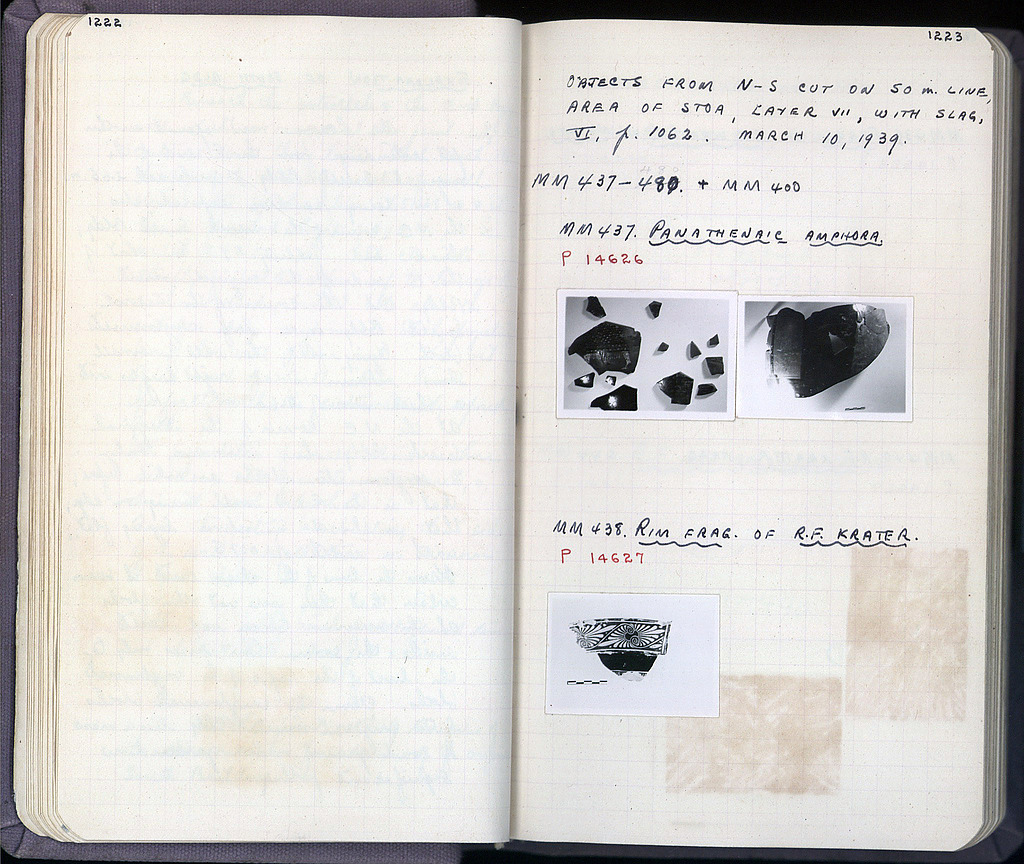 1222
1223
OBJECTS FROM N-S CUT ON 50 m. LINE,
AREA OF STOA, LAYER VII, WITH SLAG,
VI, p. 1062. MARCH 10, 1939.
MM 437-480. + MM 400
MM 437. PANATHENAIC AMPHORA.
P 14626
MM 438. RIM FRAG. OF R.F. KRATER.
P 14627